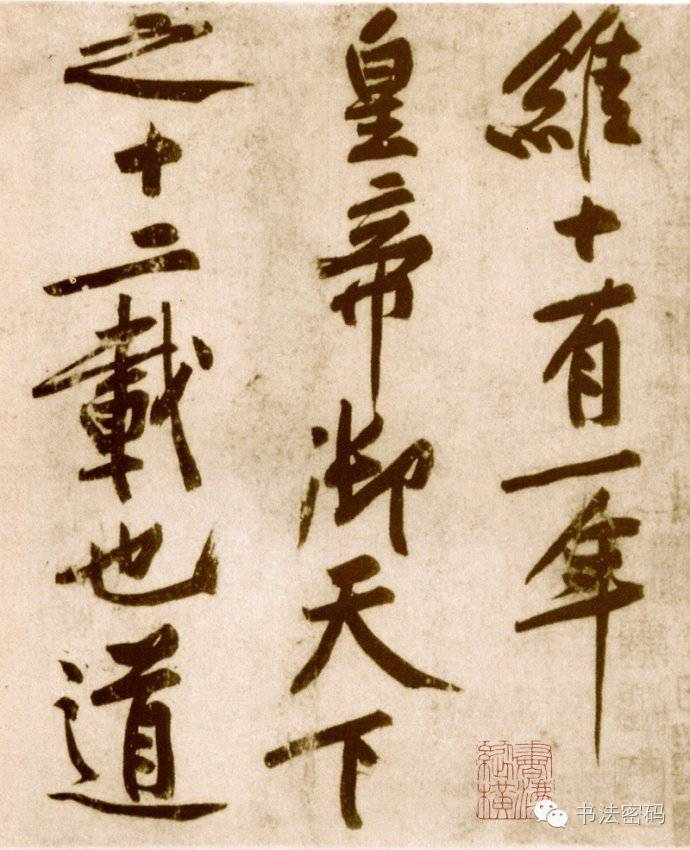 維十有一年
皇帝御天下
之十二載也道
書海
縱橫
书法密码